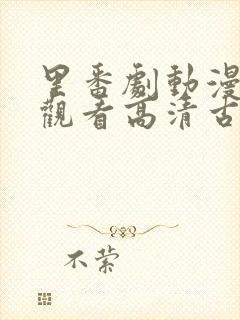 里番劇動漫
觀看高清古
不縈